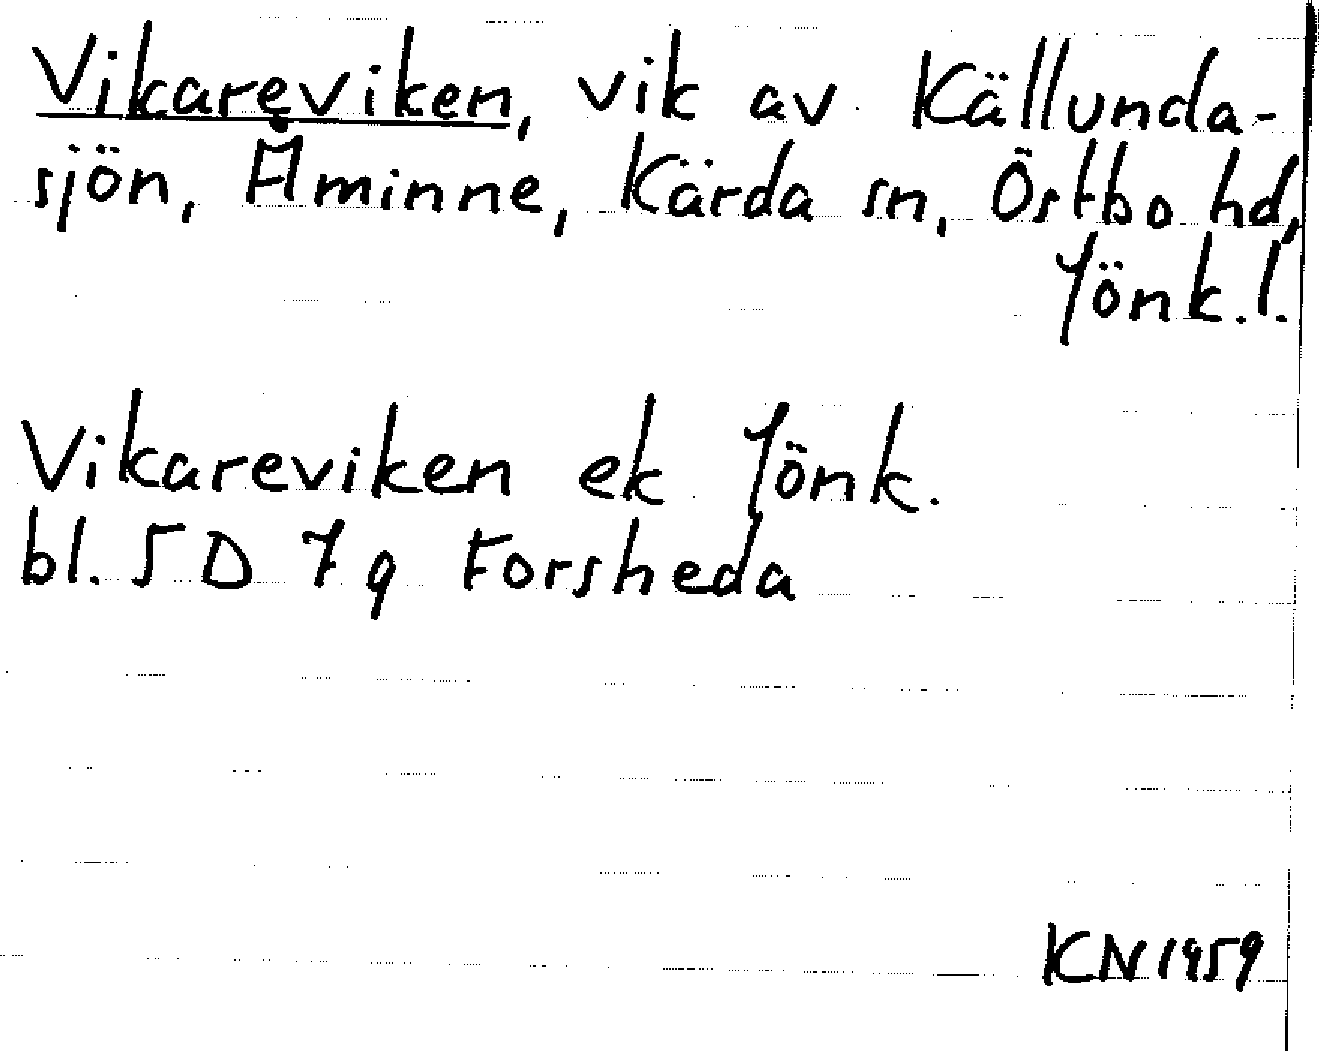 Vikareviken, vik av Källunda-
sjön, Åminne, Kärda sn, Östbo hd,
Jönk.l.
Vikareviken ek Jönk.
bl. 5 D 7 g Forsheda
KN 1959